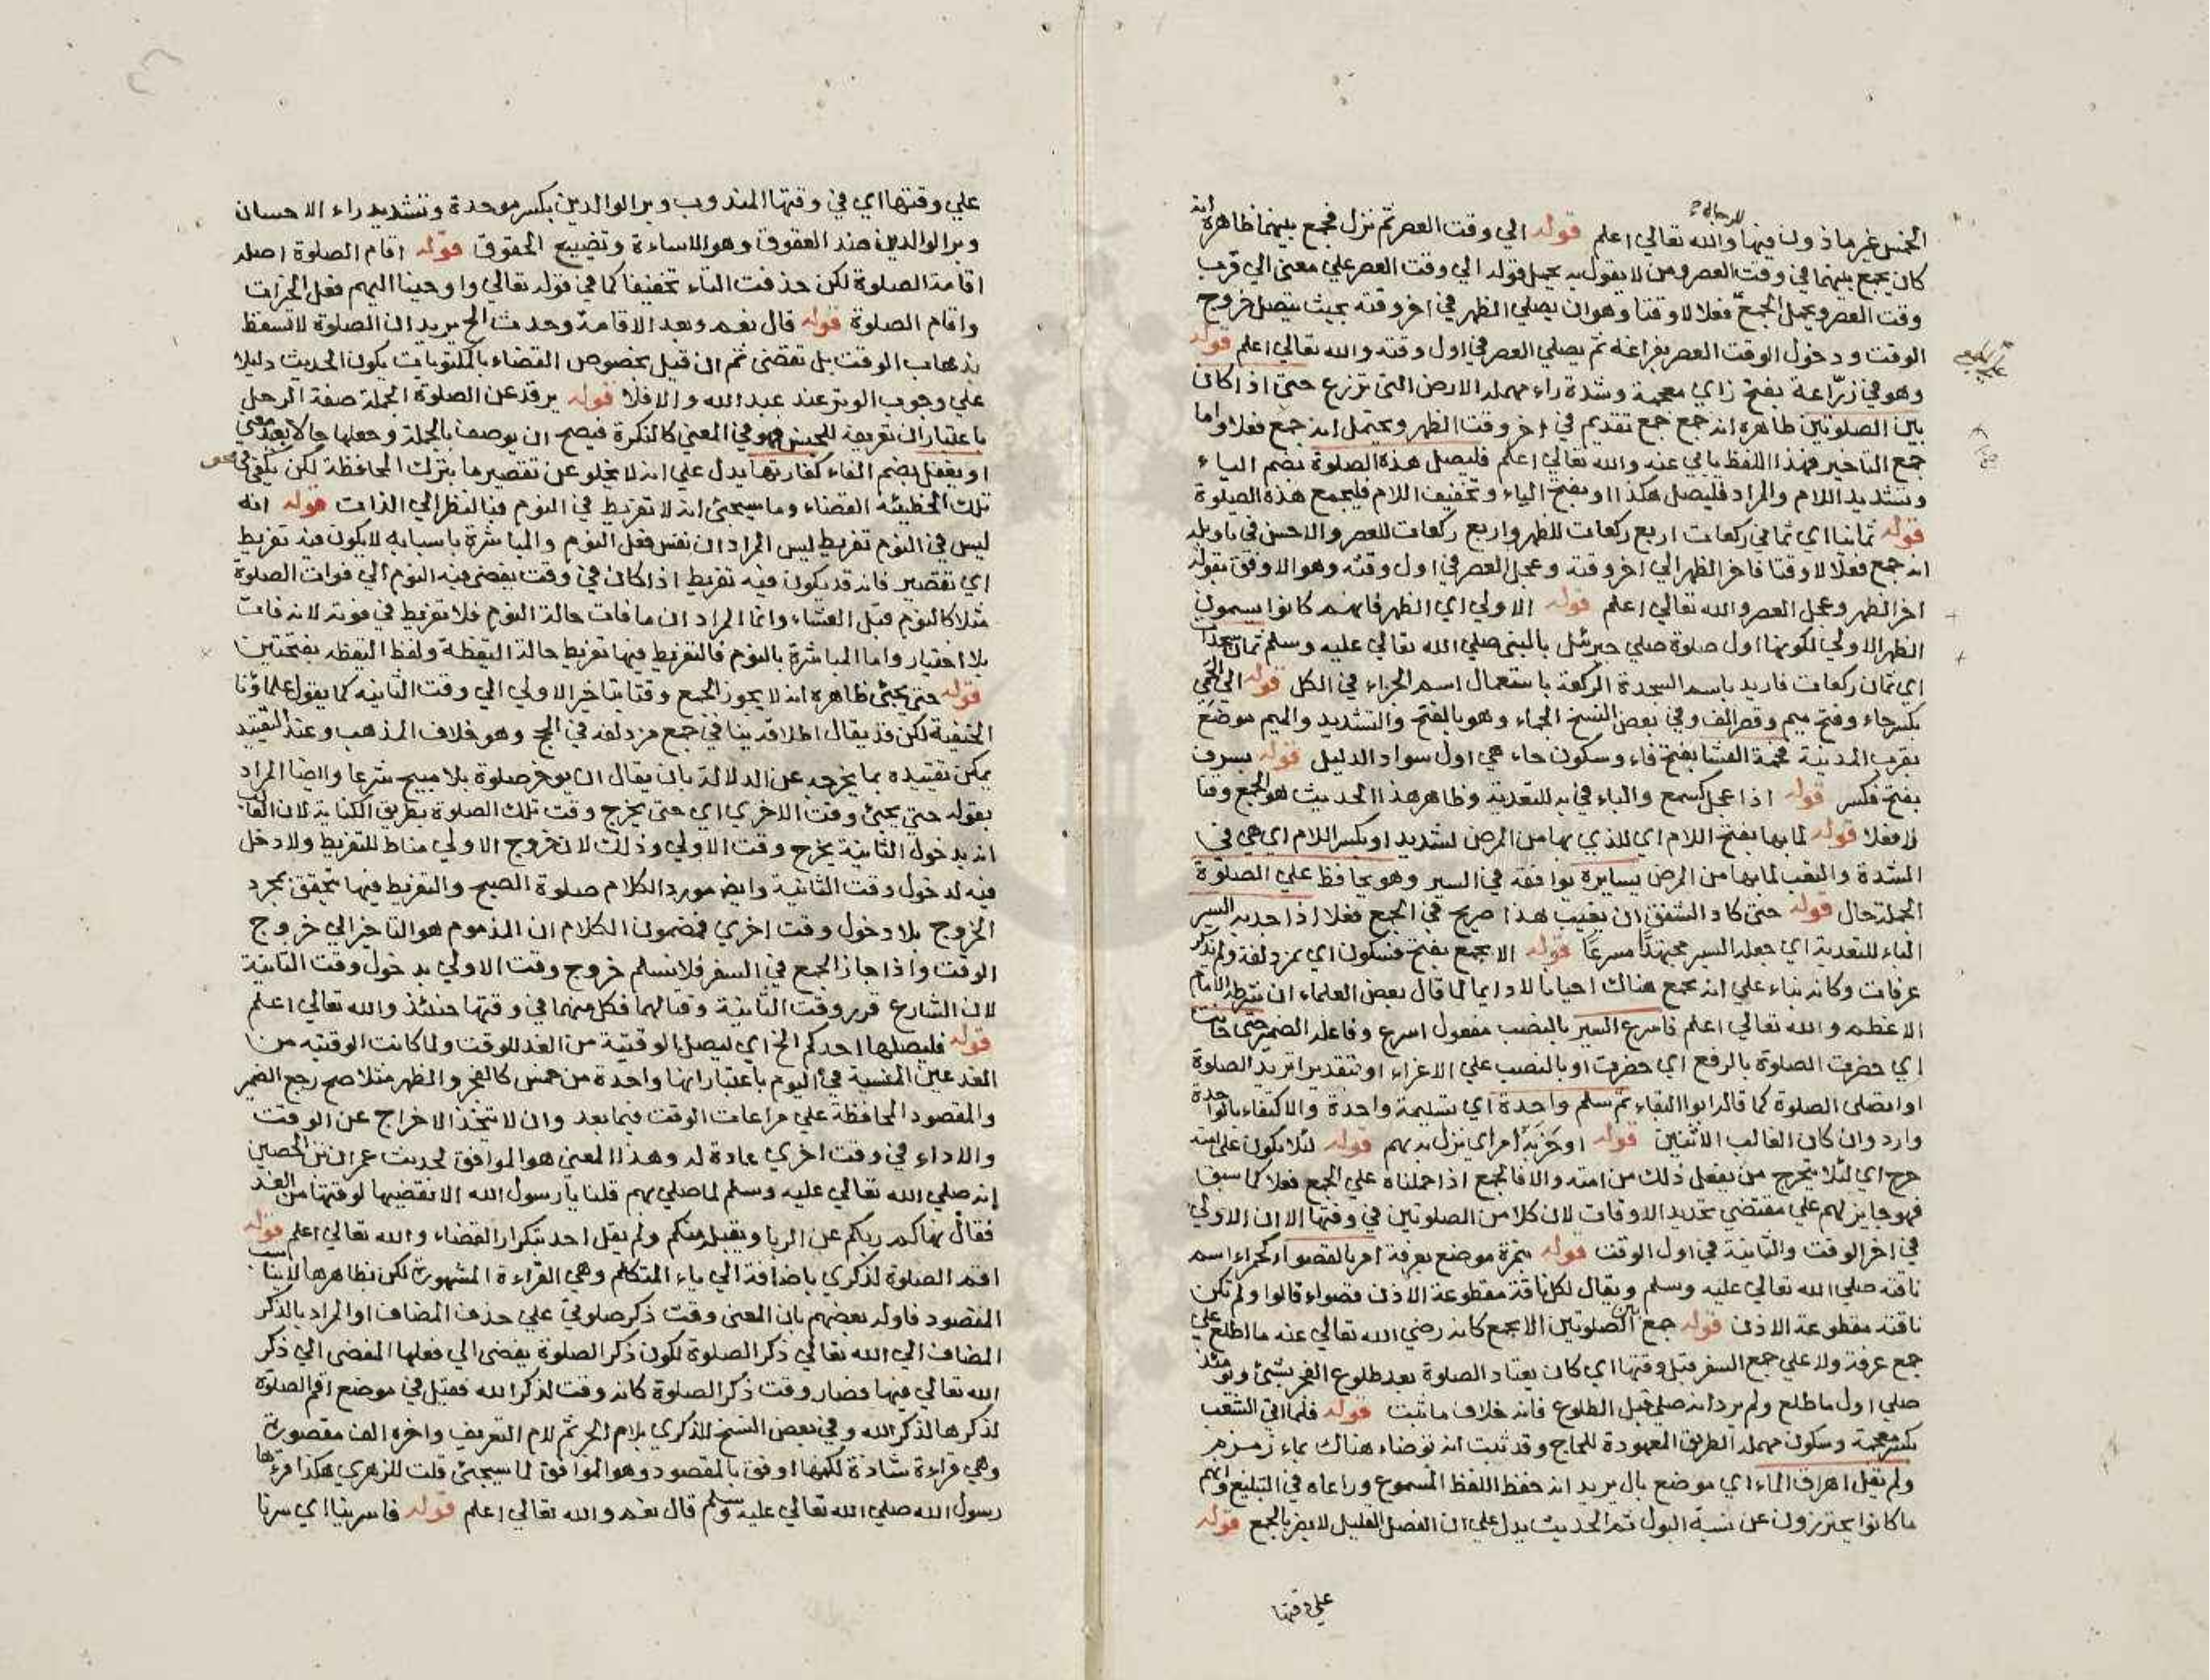 الخمس غير ماذون فيها للرجال والله تعالي اعلم قوله الي وقت العصر ثم نزل فجمع بينهما ظاهره انه
كان يجمع بينهما في وقت العصر ومن لا يقول به يحمل قوله الي وقت العصر علي معني الي قرب
وقت العصر ويحمل الجمع فعلا لا وقتا وهو ان يصلي الظهر في اخر وقته بحيث يتصل خروج
الوقت ودخول الوقت العصر بفراغه ثم يصلي العصر في اول وقته والله تعالي اعلم قوله
وهو في زرّاعة بفتح زاي معجمة وشدة راء مهملة الارض التي تزرع حتي اذا كان
بين الصلوتين ظاهره انه جمع جمع تقديم في اخر وقت الظهر ويحتمل انه جمع فعلا واما
جمع التاخير فهذا اللفظ يابي عنه والله تعالي اعلم فليصل هذه الصلوة بضم الياء
وتشديد اللام والمراد فليصل هكذا او بفتح الياء وتخفيف اللام فليجمع هذه الصلوة
قوله ثمانيا اي ثماني ركعات اربع ركعات للظهر واربع ركعات للعصر والاحسن في تاويله
انه جمع فعلا لا وقتا فاخر الظهر الي اخر وقته وعجل العصر في اول وقته وهو الاوفق بقوله
اخر الظهر وعجل العصر والله تعالي اعلم قوله الاولي اي الظهر فانهم كانوا يسمون
الظهر الاولي لكونها اول صلوة صلي جبرئيل بالنبي صلي الله تعالي عليه وسلم ثمان سجدات
اي ثمان ركعات فاريد باسم السجدة الركعة باستعمال اسم الجزاء في الكل قوله الي الحمي
بكسر حاء وفتح ميم وقصر الف وفي بعض النسخ الجماء وهو بالفتح والتشديد والميم موضع
بقرب المدينة فحمة العشا بفتح فاء وسكون حاء هي اول سواد الليل قوله بسرف
بفتح فكسر قوله اذا عجل كسمع والباء في به للتعدية وظاهر هذا الحديث هو الجمع وقتا
لا فعلا قوله لما بها بفتح اللام اي للذي بها من المرض لشديد او بكسر اللام اي هي في
الشدة والتعب لما بها من المرض يسايره يوافقه في السير وهو يحافظ علي الصلوة
الجملة حال قوله حتي كاد الشفق ان يغيب هذا صريح في الجمع فعلا اذا جد به السير
الباء للتعدية اي جعله السير مجتهدًا مسرعًا قوله الا بجمع بفتح فسكون اي بمزدلفة ولم يذكر
عرفات وكانه بناء علي انه يجمع هناك احيانا لا دايما لما قال بعض العلماء ان شرطه الامام
الاعظم والله تعالي اعلم فاسرع السير بالنصب مفعول اسرع وفاعله الضمير حتي حانت
اي حضرت الصلوة بالرفع اي حضرت او بالنصب علي الاغراء او بتقدير اتريد الصلوة
او اتصلي الصلوة كما قاله ابو البقاء ثم سلم واحدة اي تسليمة واحدة والاكتفاء بالواحدة
وارد وان كان الغالب الاثنين قوله او حزبه امر اي نزل به مهم قوله لئلا يكون علي امته
حرج اي لئلا يتحرج من يفعل ذلك من امته والا فالجمع اذا حملناه علي الجمع فعلا كما سبق
فهو جايز لهم علي مقتضي تحديد الاوقات لان كلا من الصلوتين في وقتها الا ان الاولي
في اخر الوقت والثانية في اول الوقت قوله بنمرة موضع بعرفة امر بالقصواء كحمراء اسم
ناقته صلي الله تعالي عليه وسلم ويقال لكل ناقة مقطوعة الاذن قصواء قالوا ولم تكن
ناقته مقطوعة الاذن قوله جمع بين الصلوتين الا بجمع كانه رضي الله تعالي عنه ما اطلع علي
جمع عرفة ولا علي جمع السفر قبل وقتها اي كان يعتاد الصلوة بعد طلوع الفجر بشئ ويومئذ
صلي اول ما طلع ولم يرد انه صلي قبل الطلوع فانه خلاف ما ثبت قوله فلما اتي الشعب
بكسر معجمة وسكون مهملة الطريق المعهودة للحاج وقد ثبت انه توضاء هناك بماء زمزم
ولم يقل اهراق الماء اي موضع بال يريد انه حفظ اللفظ المسموع وراعاه في التبليغ وانهم
ما كانوا يحترزون عن نسبة البول ثم الحديث يدل علي ان الفصل القليل لا يضر بالجمع قوله
علي وقتها
علي وقتها اي في وقتها المندوب وبر الوالدين بكسر موحدة وتشديد راء الاحسان
وبر الوالدين ضد العقوق وهو الاساءة وتضييع الحقوق قوله اقام الصلوة اصله
اقامة الصلوة لكن حذفت التاء تخفيفا كما في قوله تعالي واوحينا اليهم فعل الخيرات
واقام الصلوة قوله قال نعم وبعد الاقامة وحدث الخ يريد ان الصلوة لا تسقط
بذهاب الوقت بل تقضي ثم ان قيل بخصوص القضاء بالمكتوبات يكون الحديث دليلا
علي وجوب الوتر عند عبد الله والا فلا قوله يرقد عن الصلوة الجملة صفة الرجل
باعتبار ان تعريفه للجنس فهو في المعني كالنكرة فيصح ان يوصف بالجملة وجعلها حالا بعيد معني
او يغفل بضم الفاء كفارتها يدل علي انه لا يخلو عن تقصير ما بترك المحافظة لكن يكفي في محو
تلك الخطيئة القضاء وما سيجئ انه لا تفريط في النوم فبالنظر الي الذات قوله انه
ليس في النوم تفريط ليس المراد ان نفس فعل النوم والمباشرة باسبابه لا يكون فيه تفريط
اي تقصير فانه قد يكون فيه تفريط اذا كان في وقت يفضي فيه النوم الي فوات الصلوة
مثلا كالنوم قبل العشاء وانما المراد ان ما فات حالة النوم فلا تفريط في فوته لانه فات
بلا اختيار واما المباشرة بالنوم فالتفريط فيها تفريط حالة اليقظة ولفظ اليقظة بفتحتين
قوله حتي يجئ ظاهره انه لا يجوز الجمع وقتا بتاخير الاولي الي وقت الثانية كما يقول علماؤنا
الحنفية لكن قد يقال اطلاقه ينافي جمع مزدلفة في الحج وهو خلاف المذهب وعند التقييد
يمكن تقييده بما يخرجه عن الدلالة بان يقال ان يوخر صلوة بلا مبيح شرعا وايضا المراد
بقوله حتي يجئ وقت الاخري اي حتي يخرج وقت تلك الصلوة بطريق الكناية لان الغالب
انه بدخول الثانية يخرج وقت الاولي وذلك لان خروج الاولي مناط للتفريط ولا دخل
فيه لدخول وقت الثانية وايض مورد الكلام صلوة الصبح والتفريط فيها يتحقق بمجرد
الخروج بلا دخول وقت اخري فمضمون الكلام ان المذموم هو التاخير الي خروج
الوقت واذا جاز الجمع في السفر فلا نسلم خروج وقت الاولي بدخول وقت الثانية
لان الشارع قرر وقت الثانية وقتا لهما فكل منهما في وقتها حينئذ والله تعالي اعلم
قوله فليصلها احدكم الخ اي ليصل الوقتية من الغد للوقت ولما كانت الوقتية من
الغد عين المنسية في اليوم باعتبار انها واحدة من خمس كالفجر والظهر مثلا صح رجع الضمير
والمقصود المحافظة علي مراعات الوقت فيما بعد وان لا يتخذ الاخراج عن الوقت
والاداء في وقت اخري عادة له وهذا المعني هو الموافق لحديث عمران بن الحصين
انه صلي الله تعالي عليه وسلم لما صلي بهم قلنا يا رسول الله الا نقضيها لوقتها من الغد
فقال نهاكم ربكم عن الربا ويقبله منكم ولم يقل احد بتكرار القضاء والله تعالي اعلم قوله
اقم الصلوة لذكري باضافة الي ياء المتكلم وهي القراءة المشهورة لكن بظاهرها لا يناسب
المقصود فاوله بعضهم بان المعني وقت ذكر صلوتي علي حذف المضاف او المراد بالذكر
المضاف الي الله تعالي ذكر الصلوة لكون ذكر الصلوة يفضي الي فعلها المفضي الي ذكر
الله تعالي فيها فصار وقت ذكر الصلوة كانه وقت لذكر الله فقيل في موضع اقم الصلوة
لذكرها لذكر الله وفي بعض النسخ للذكري بلام الجر ثم لام التعريف واخره الف مقصورة
وهي قراءة شاذة لكنها اوفق بالمقصود وهو الموافق لما سيجئ قلت للزهري هكذا قرءها
رسول الله صلي الله تعالي عليه وسلم قال نعم والله تعالي اعلم قوله فاسرينا اي سرنا